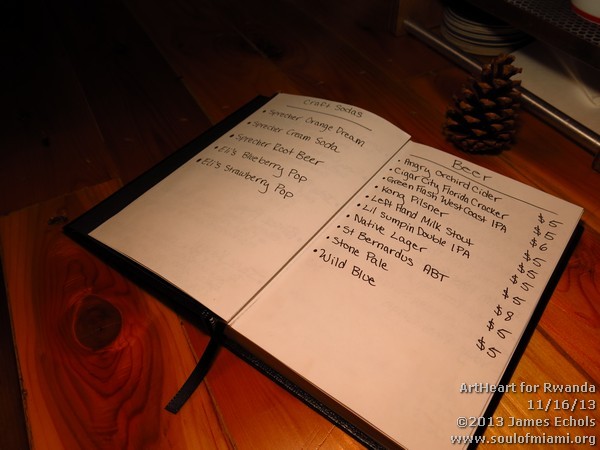 Craft Sodas
• Sprecher Orange Dream
• Sprecher Cream Soda
• Sprecher Root Beer
• Eli's Blueberry Pop
• Eli's Strawberry Pop
Beer
• Angry Orchird Cider $5
• Cigar City Florida Cracker $5
• Green Flash West Coast IPA $6
• Kona Pilsner $5
• Left Hand Milk Stout $5
• Lil sumpin Double IPA $5
• Native Lager $5
• St Bernardus ABT $8
• Stone Pale $5
• Wild Blue $5
ArtHeart for Rwanda
11/16/13
©2013 James Echols
www.soulofmiami.org